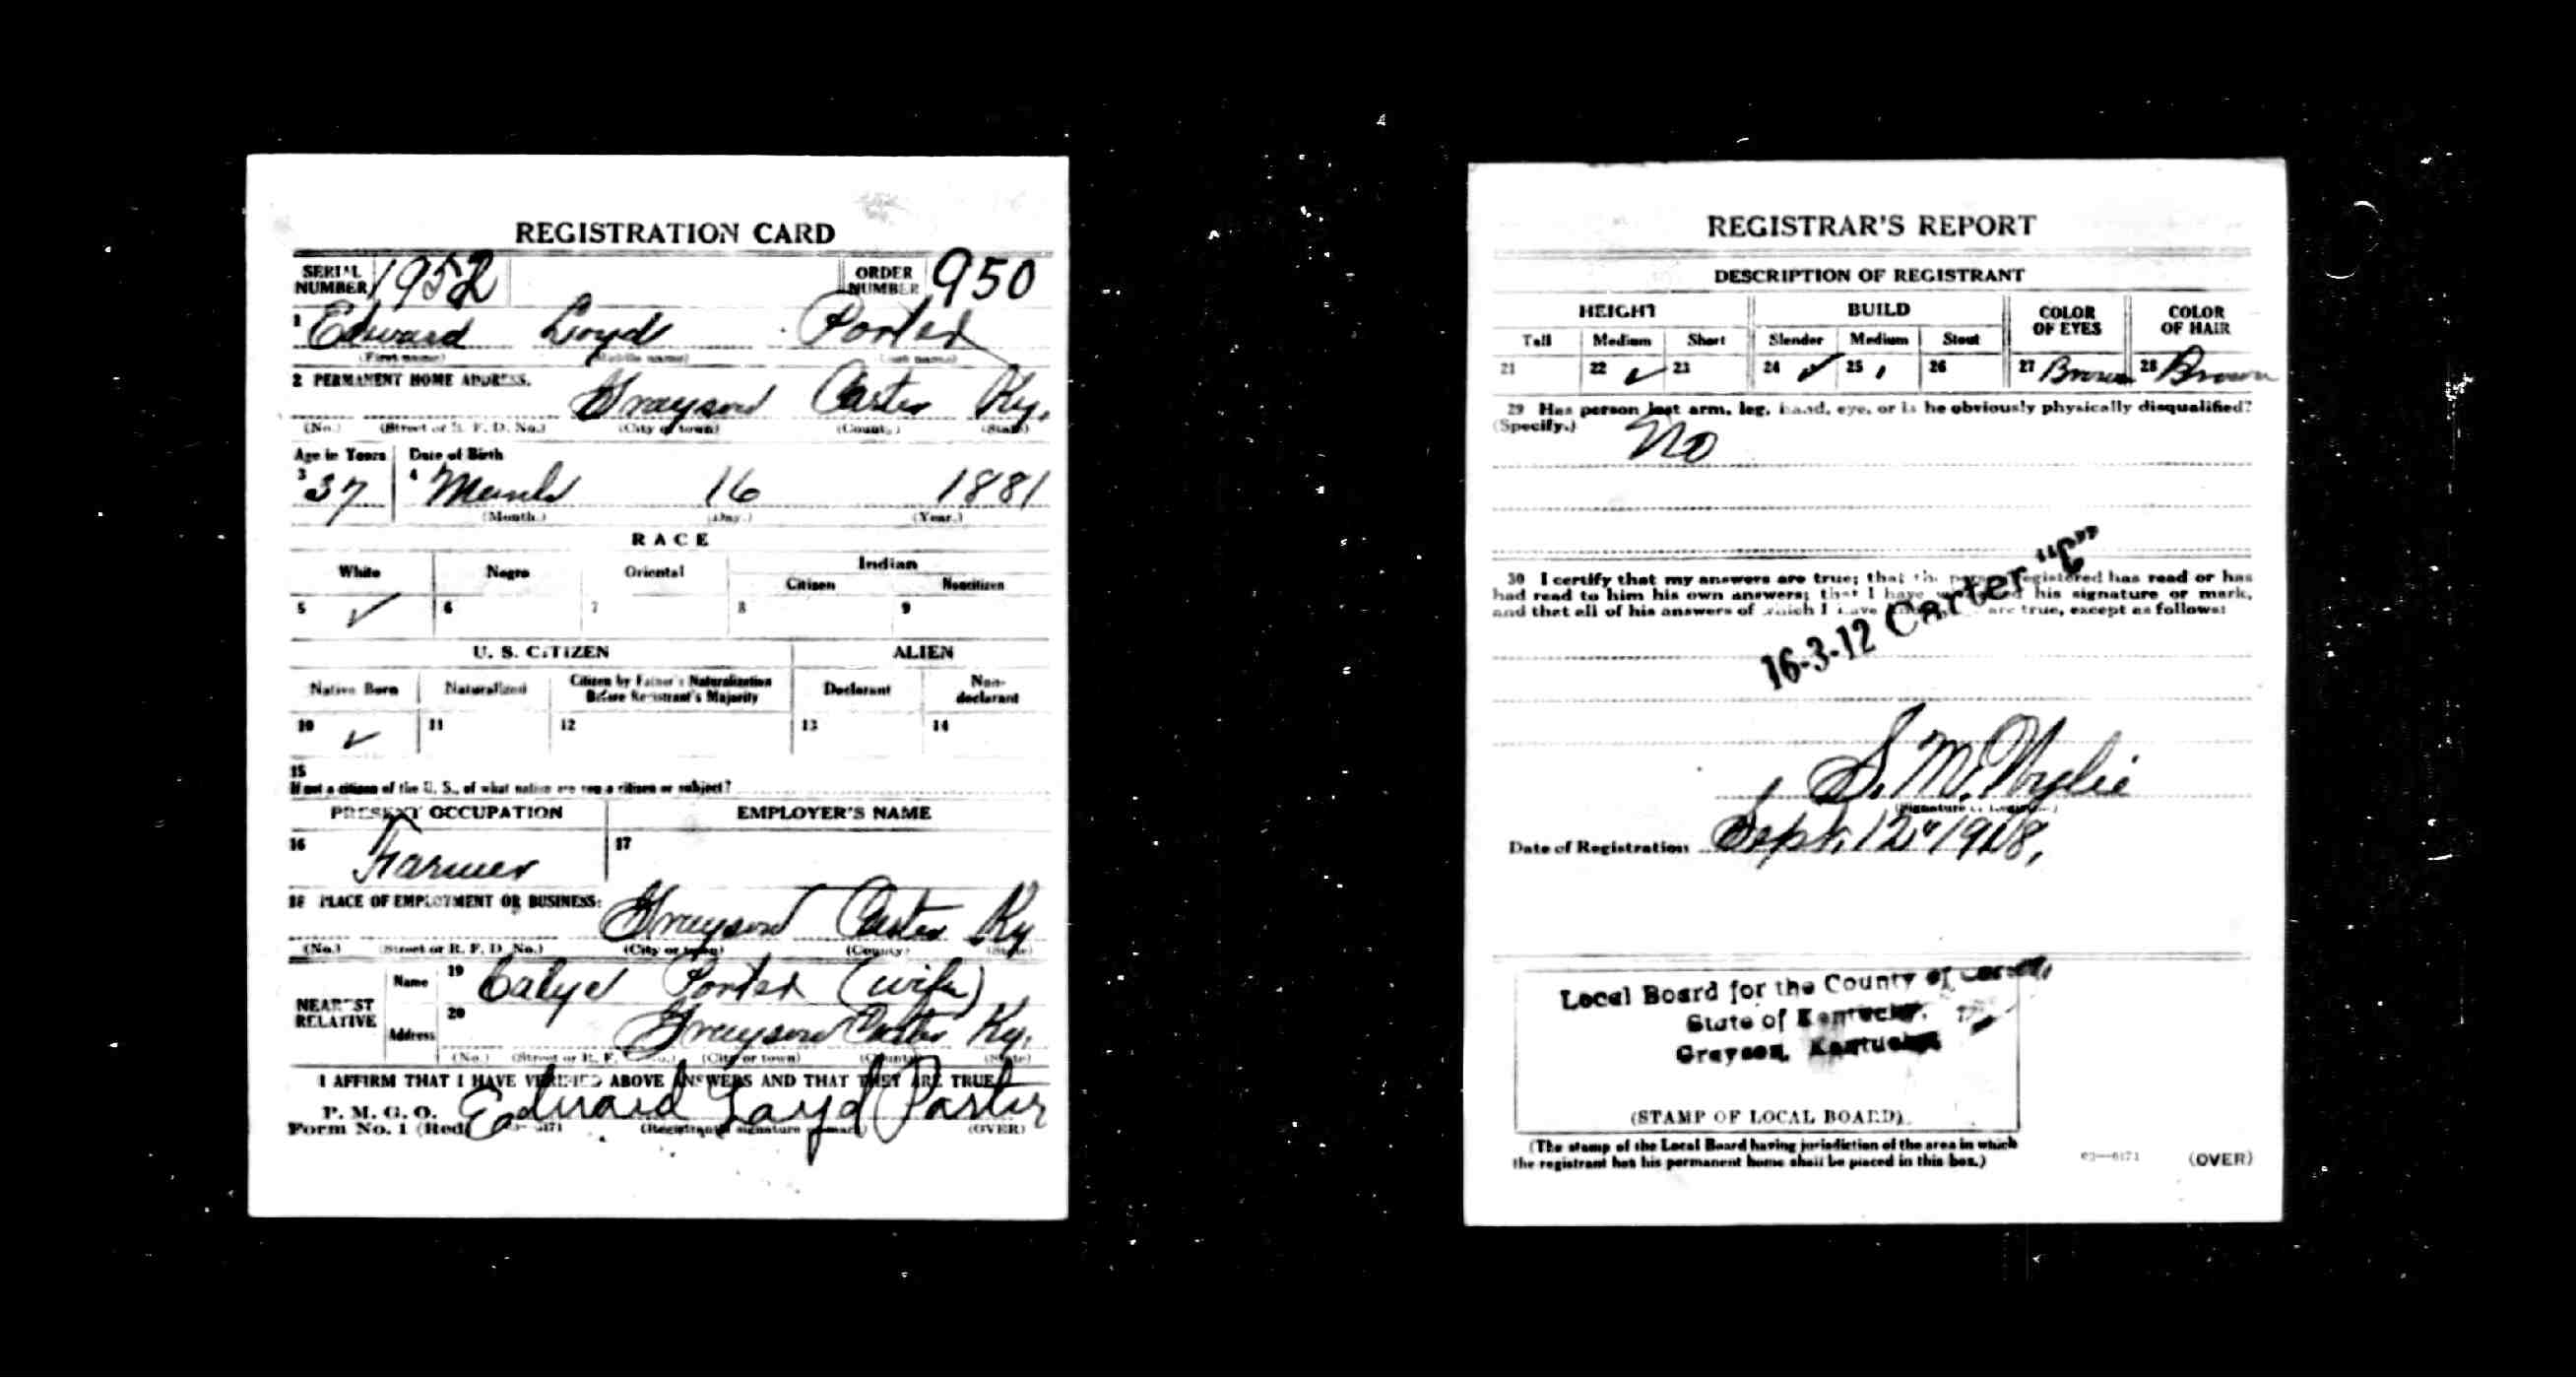 REGISTRATION CARD
SERIAL NUMBER 1952 ORDER NUMBER 950
1 Edward Loyd Porter
(First name) (Middle name) (Last name)
2 PERMANENT HOME ADDRESS.
Grayson Carter Ky.
(No.) (Street or R. F. D. No.) (City or town) (County) (State)
Age in Years Date of Birth
3 37 4 March 16 1881
(Month.) (Day.) (Year.)
RACE
White Negro Oriental Indian
Citizen Noncitizen
5 ✓ 6 7 8 9
U. S. CITIZEN ALIEN
Native Born Naturalized Citizen by Father's Naturalization Before Registrant's Majority Declarant Non-declarant
10 ✓ 11 12 13 14
15
If not a citizen of the U. S., of what nation are you a citizen or subject?
PRESENT OCCUPATION EMPLOYER'S NAME
16 Farmer 17
18 PLACE OF EMPLOYMENT OR BUSINESS:
Grayson Carter Ky
(No.) (Street or R. F. D. No.) (City or town) (County) (State)
NEAREST RELATIVE
Name 19 Porter (wife)
Address 20 Grayson Carter Ky.
(No.) (Street or R. F. D. No.) (City or town) (County) (State)
I AFFIRM THAT I HAVE VERIFIED ABOVE ANSWERS AND THAT THEY ARE TRUE
P. M. G. O.
Form No. 1 (Red) Edward Layd Porter
(Registrant's signature or mark) (OVER)
REGISTRAR'S REPORT
DESCRIPTION OF REGISTRANT
HEIGHT BUILD COLOR OF EYES COLOR OF HAIR
Tall Medium Short Slender Medium Stout
21 22 ✓ 23 24 ✓ 25 26 27 Brown 28 Brown
29 Has person lost arm, leg, hand, eye, or is he obviously physically disqualified?
(Specify.) No
30 I certify that my answers are true; that the person registered has read or has
had read to him his own answers; that I have witnessed his signature or mark,
and that all of his answers of which I have knowledge are true, except as follows:
16-3-12 Carter "C"
S. M. Wylie
(Signature of Registrar)
Date of Registration Sept. 12 1918,
Local Board for the County of Carter,
State of Kentucky,
Grayson, Kentucky
(STAMP OF LOCAL BOARD)
(The stamp of the Local Board having jurisdiction of the area in which
the registrant has his permanent home shall be placed in this box.)
03—6171 (OVER)